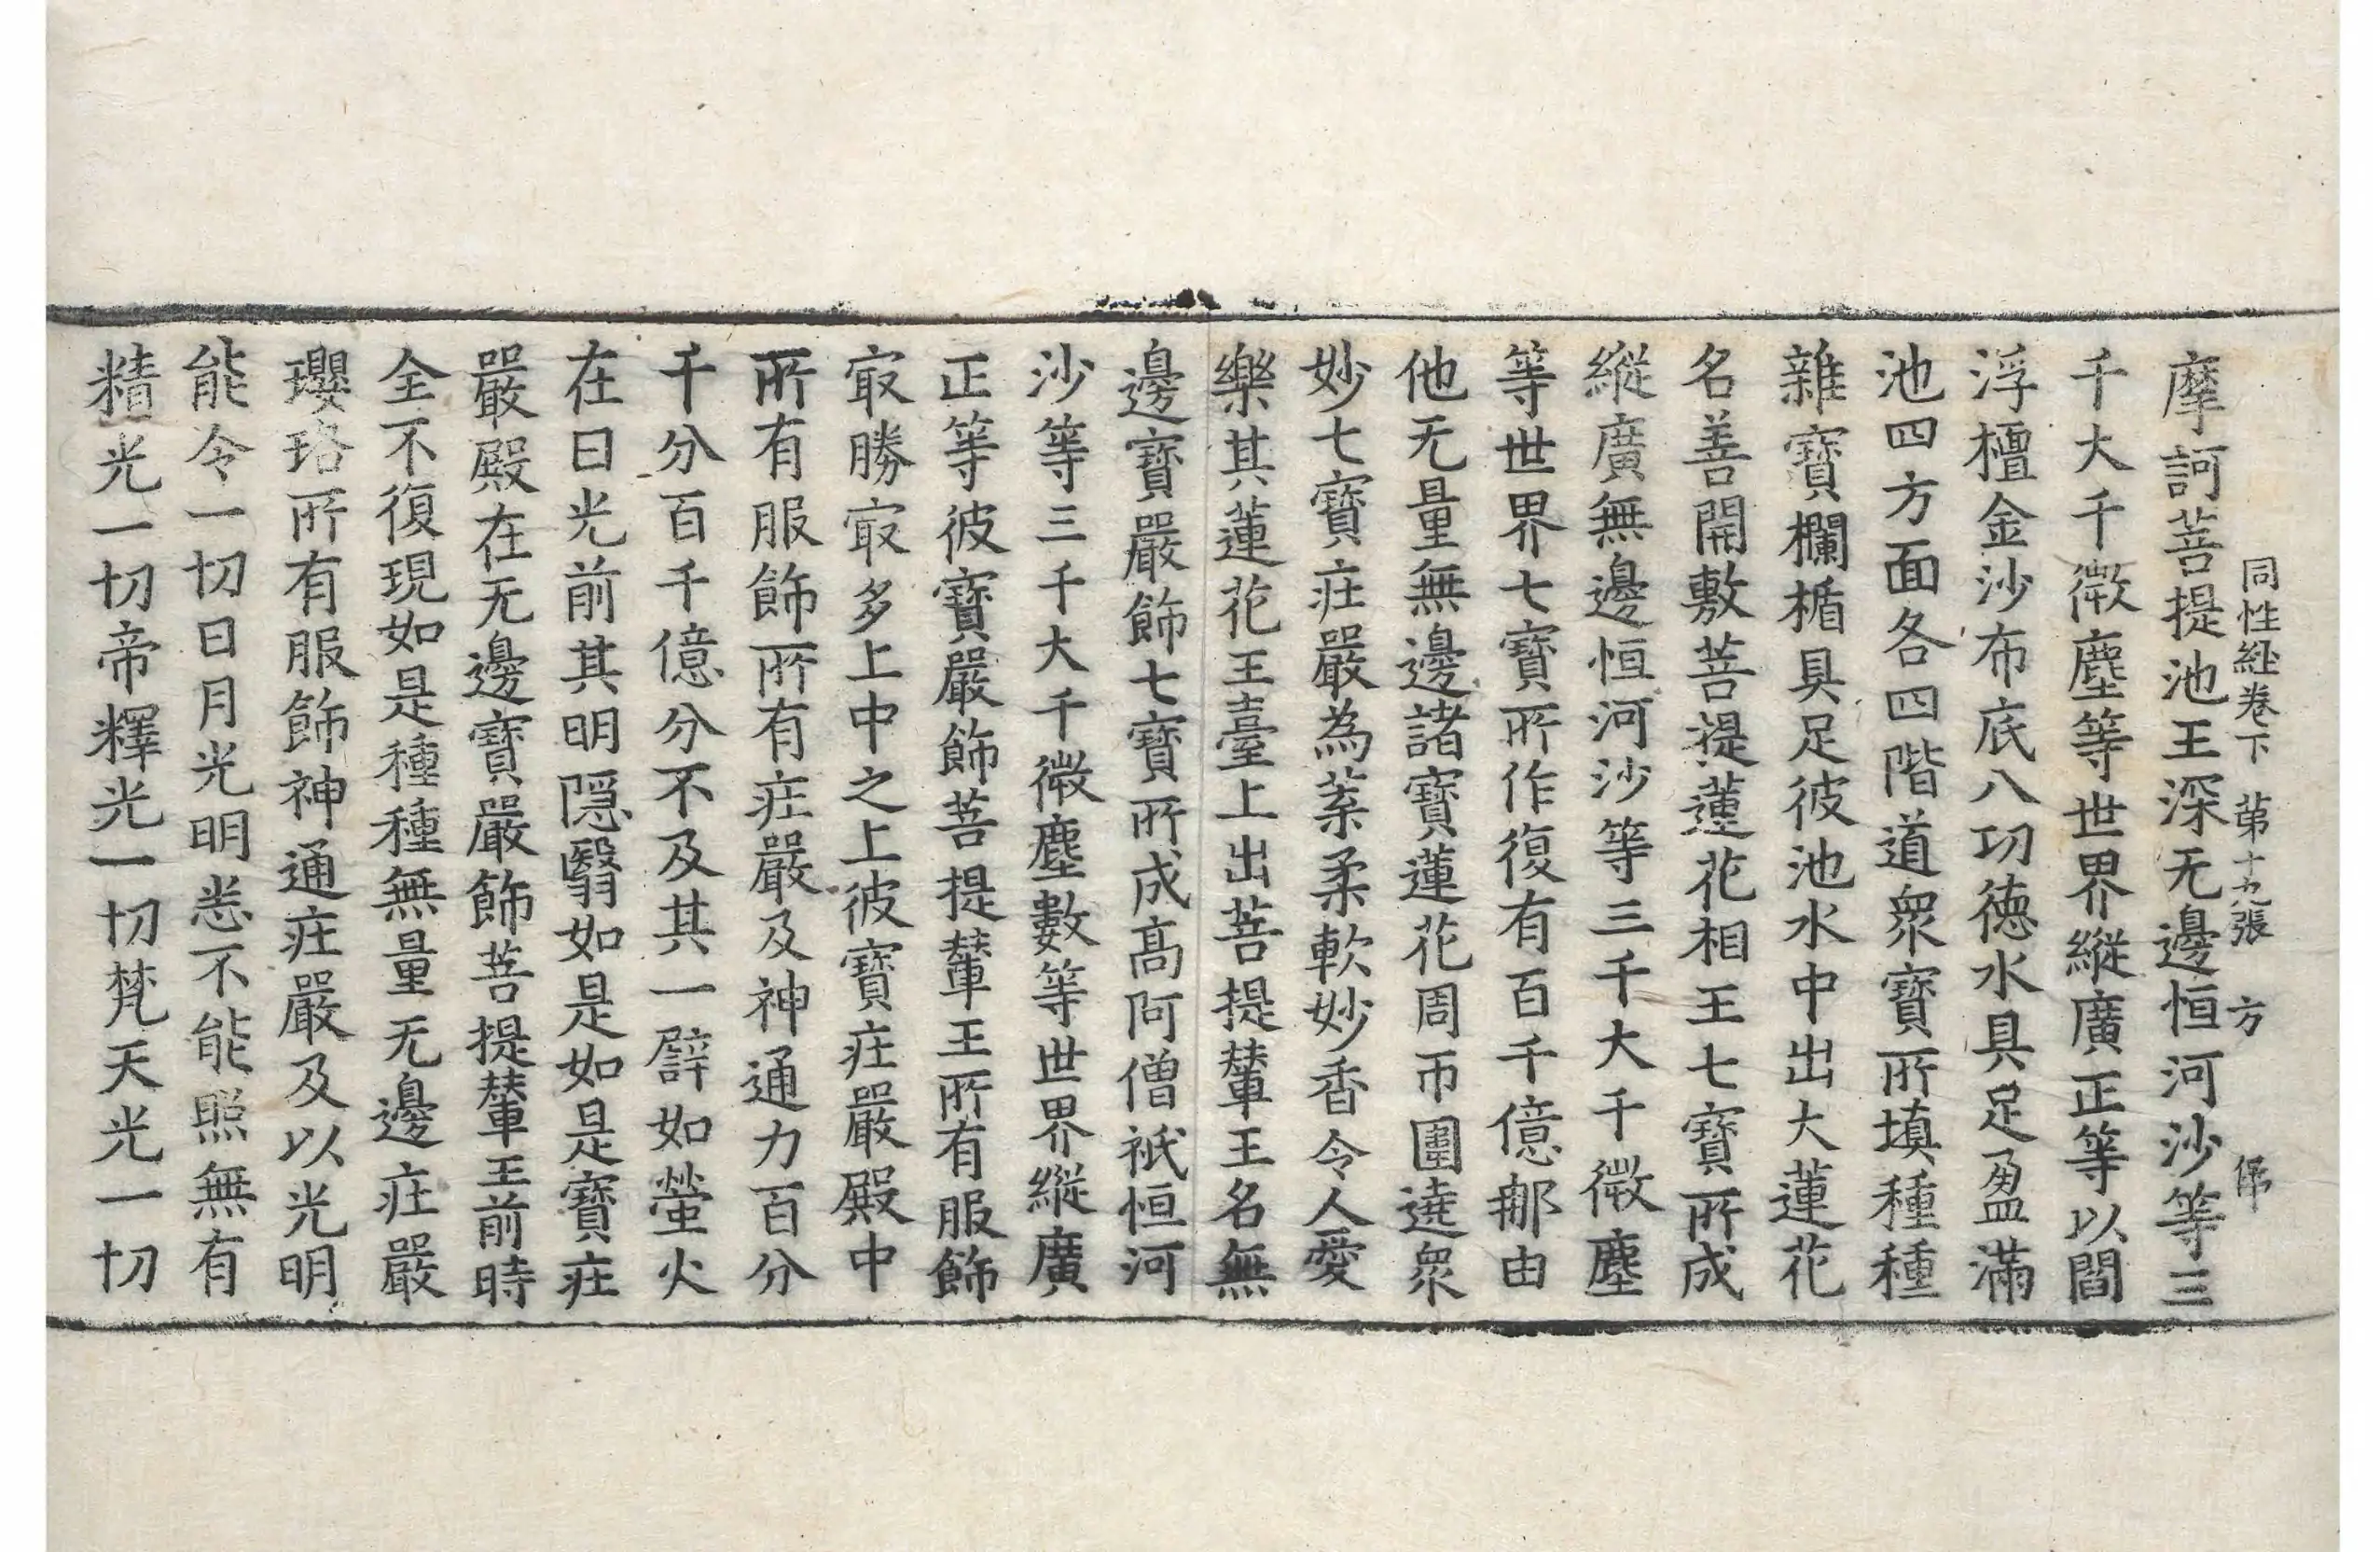 同性經卷下　苐十九張　方
摩訶菩提池王深无邊恒河沙等三
千大千微塵等世界縱廣正等以閻
浮檀金沙布底八功德水具足盈滿
池四方面各四階道衆寶所填種種
雜寶欄楯具足彼池水中出大蓮花
名善開敷菩提蓮花相王七寶所成
縱廣無邊恒河沙等三千大千微塵
等世界七寶所作復有百千億那由
他无量無邊諸寶蓮花周帀圍遶衆
妙七寶庄嚴為葉柔軟妙香令人愛
樂其蓮花王臺上出菩提輦王名無
邊寶嚴飾七寶所成高阿僧祇恒河
沙等三千大千微塵數等世界縱廣
正等彼寶嚴飾菩提輦王所有服飾
冣勝冣多上中之上彼寶庄嚴殿中
所有服飾所有庄嚴及神通力百分
千分百千億分不及其一譬如螢火
在日光前其明隱翳如是如是寶庄
嚴殿在无邊寶嚴飾菩提輦王前時
全不復現如是種種無量无邊庄嚴
瓔珞所有服飾神通庄嚴及以光明
能令一切日月光明悉不能照無有
精光一切帝釋光一切梵天光一切